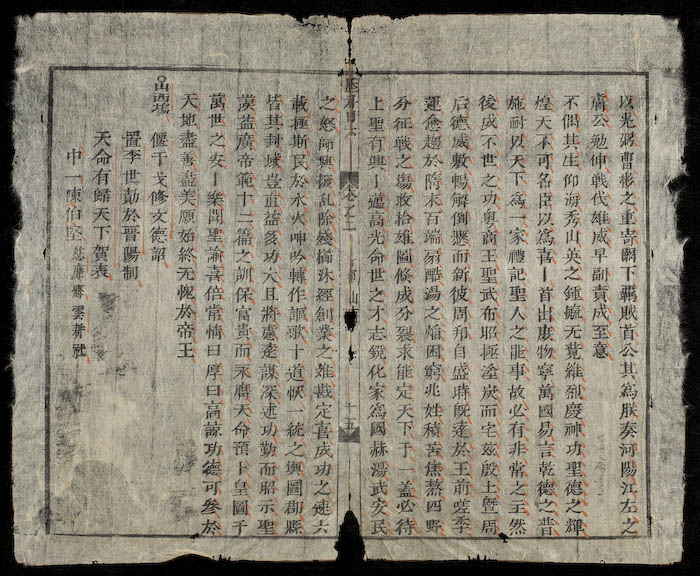 以光弼曹彬之重寄閫下羈賊首公其為朕奏河陽江左之
膚公勉伸戦伐雄威早副責成至意
不偶其生仰海秀山英之鍾毓无競維烈慶神功聖德之輝
煌天不可名臣以為喜丨首出庻物寧萬國易言乾德之普
施耐以天下為一家禮記聖人之能事故必有非常之主然
後成不世之功粤商王聖武布昭極塗炭而宅玆殷土曁周
后德威敷暢解倒懸而新彼周邦自盛時旣遠於王前世季
運愈趨於隋末百端翦酷湯之熖困窮兆姓積苦焦熬四野
分征戦之塲收拾雄圖倏成分裂求能定天下于一盖必待
上聖有興丨邁高光命世之才志鋭化家為國赫湯武安民
卷之二 山 十五
之怒師興撥乱除殘掃經創業之难戡定喜成功之速六
載拯斯民於水火呻吟轉作謳歌十道恢一統之輿圖郡縣
皆其封域豈直益多功大且將慮遠謀深述功勤而昭示聖
謨益廣帝範十二篇之訓保富貴而永膺天命預卜皇圖千
萬世之安丨樂聞聖諭喜倍常情曰厚曰高諒功德可參於
天地盡善盡美願始終无愧於帝王
山西塲 偃干戈修文德詔
置李世勣於晋陽制
天命有歸天下賀表
中一陳伯堅 慈廉齋雲耕社